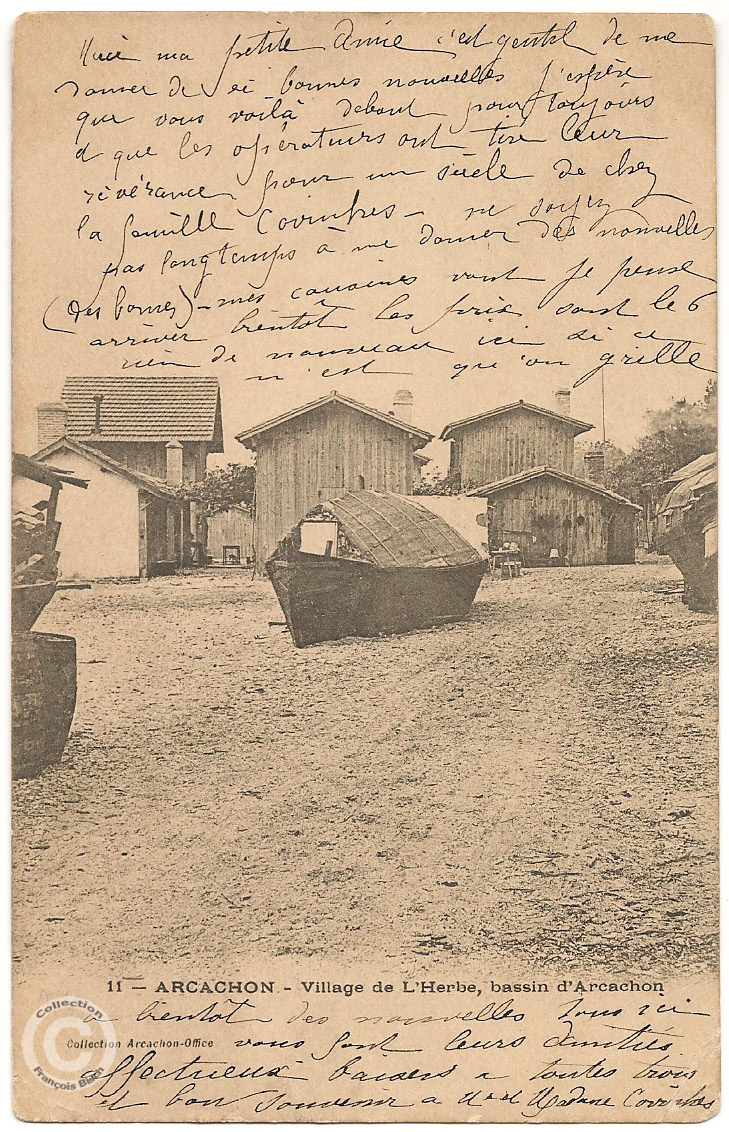 Merci ma petite Amie c'est gentil de me
donner de si bonnes nouvelles j'espère
que vous voilà debout pour toujours
et que les opérateurs ont tiré leur
révérence pour un siècle de chez
la famille - ne soyez
pas longtemps à me donner des nouvelles
(des bonnes) - mes cousines vont je pense
arriver bientôt les prix sont le 6
rien de nouveau ici si ce
n'est qu'on grille
11 — ARCACHON. - Village de L'Herbe, bassin d'Arcachon
a bientôt des nouvelles tous ici
Collection Arcachon-Office vous font leurs amitiés
affectueux baisers a toutes trois
et bon souvenir a Madame
Collection
C
François Bisch